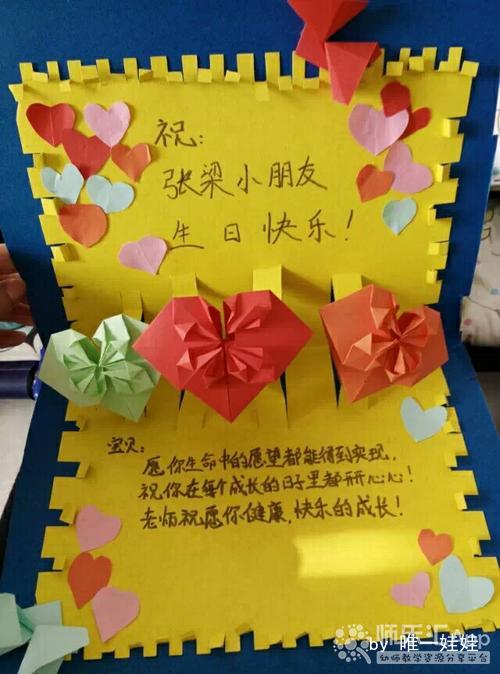 祝:
张梁小朋友
生日快乐!
宝贝:
愿你生命中的愿望都能得到实现,
祝你在每个成长的日子里都开心心!
老师祝愿你健康,快乐的成长!
by 唯一娃娃
幼师教学资源分享平台